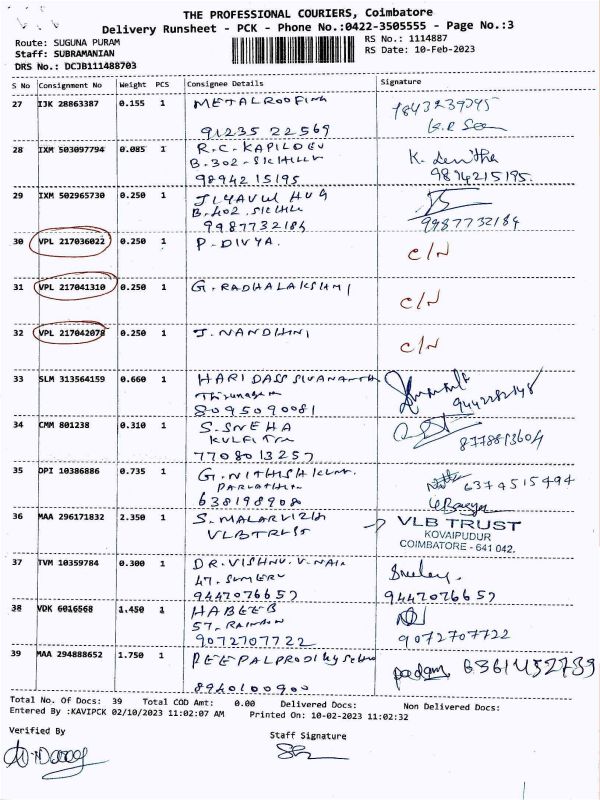 THE PROFESSIONAL COURIERS, Coimbatore
Delivery Runsheet - PCK - Phone No.:0422-3505555 - Page No.:3
Route: SUGUNA PURAM
RS No.: 1114887
Staff: SUBRAMANIAN
RS Date: 10-Feb-2023
DRS No.: DCJB111488703
S No Consignment No Weight PCS Consignee Details Signature
27 IJK 28863387 0.155 1 METALROOFING
91235 22569
28 IXM 503097794 0.085 1 R.C. KAPILDEV
B.302-
9894215195 9894215195.
29 IXM 502965730 0.250 1
B.402.
9987732184 9987732184
30 VPL 217036022 0.250 1 P-DIVYA. C/N
31 VPL 217041310 0.250 1 G. RADHALAKSHMI C/N
32 VPL 217042078 0.250 1 J. NANDHINI C/N
33 SLM 313564159 0.660 1 HARI DASS
8095090081
34 CMM 801238 0.310 1 S. SNEHA
7708013257
35 DPI 10386886 0.735 1 G. NITHISH 6374515494
36 MAA 296171832 2.350 1 S. MALARVIZH
VLBTRUST
VLB TRUST
KOVAIPUDUR
COIMBATORE - 641 042.
37 TVM 10359784 0.300 1 DR. VISHNU. V. NAIR
47. SUMERU
9447076657 9447076657
38 VDK 6016568 1.450 1 HABEEB
57.
9072707722 9072707722
39 MAA 294888652 1.750 1 padam
8940100900
Total No. Of Docs: 39 Total COD Amt: 0.00 Delivered Docs: Non Delivered Docs:
Entered By :KAVIPCK 02/10/2023 11:02:07 AM Printed On: 10-02-2023 11:02:32
Verified By Staff Signature